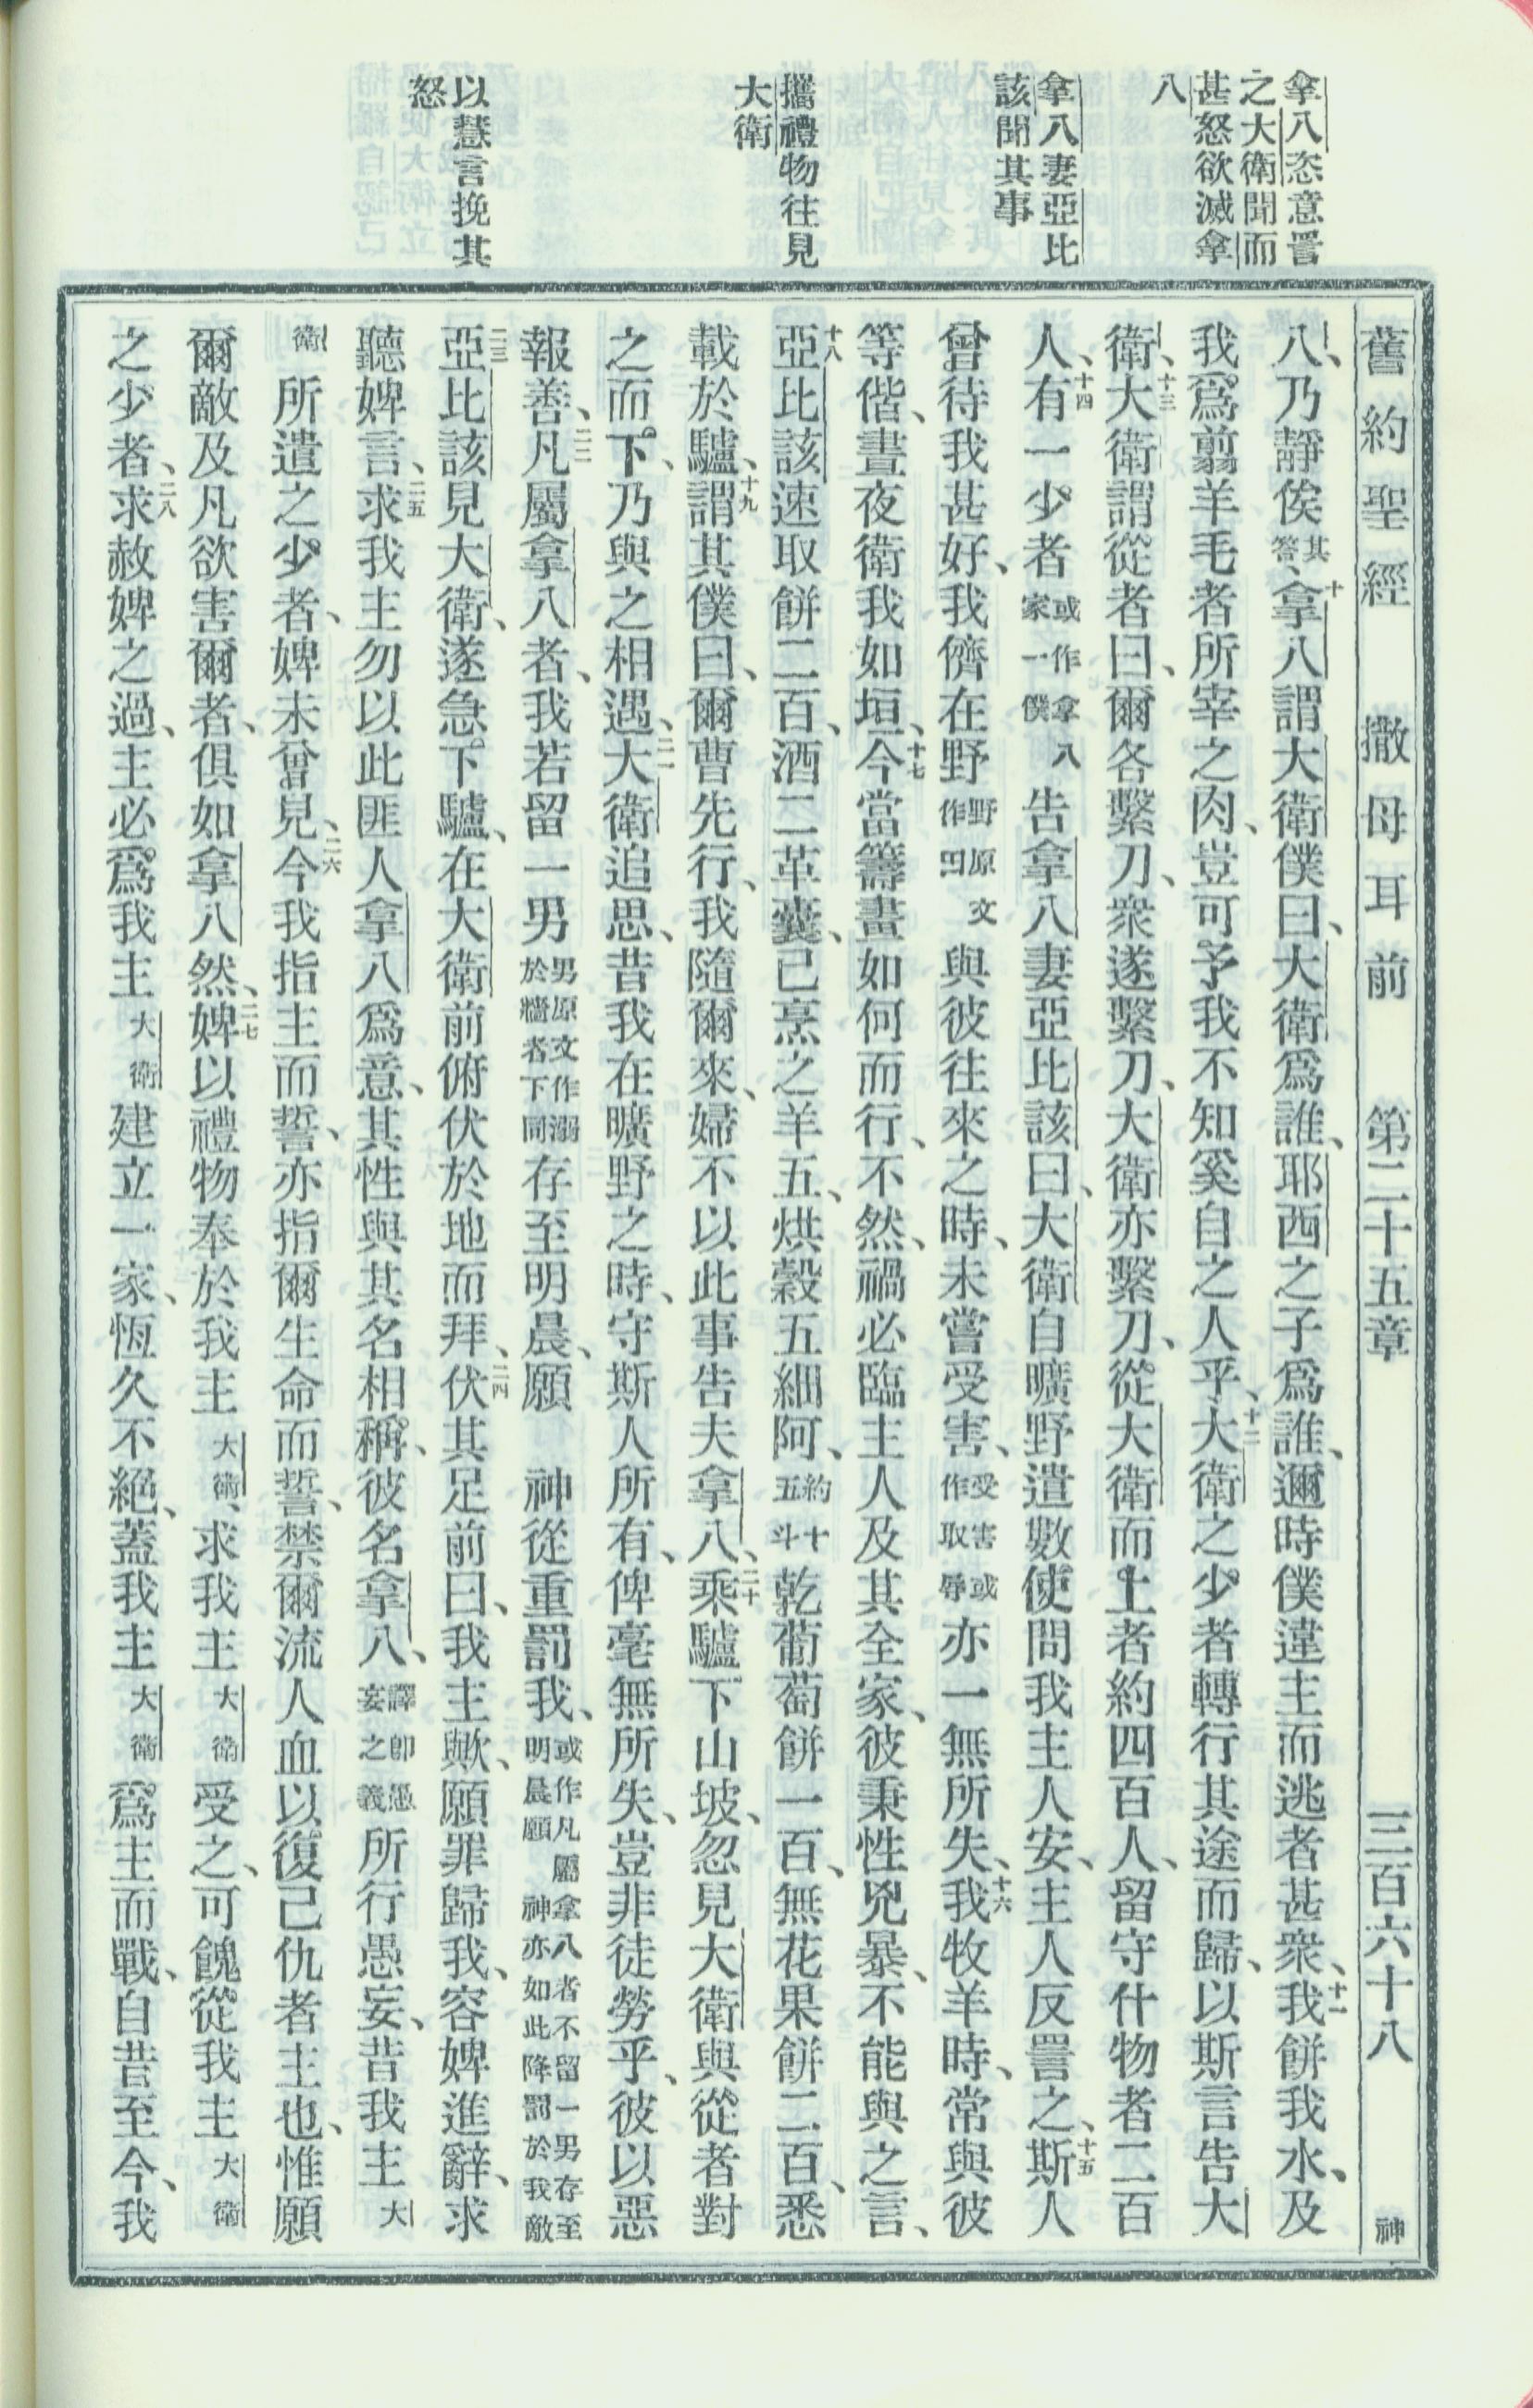 拿八恣意詈
之大衛聞而
甚怒欲滅拿
八
拿八妻亞比
該聞其事
攜禮物往見
大衛
以慧言挽其
怒
舊約聖經 撒母耳前 第二十五章 三百六十八 神
八、乃靜俟其答、十拿八謂大衛僕曰、大衛爲誰、耶西之子爲誰、邇時僕違主而逃者甚衆、十一我餅我水、及
我爲翦羊毛者所宰之肉、豈可予我不知奚自之人乎、十二大衛之少者轉行其途而歸、以斯言告大
衛、十三大衛謂從者曰、爾各繫刀、衆遂繫刀、大衛亦繫刀、從大衛而上者約四百人、留守什物者二百
人、十四有一少者或作拿八家一僕告拿八妻亞比該曰、大衛自曠野遣數使問我主人安、主人反詈之、十五斯人
曾待我甚好、我儕在野野原文作田與彼往來之時、未嘗受害、受害或作取辱亦一無所失、十六我牧羊時、常與彼
等偕、晝夜衛我如垣、十七今當籌畫如何而行、不然、禍必臨主人及其全家、彼秉性兇暴、不能與之言、
十八亞比該速取餅二百、酒二革囊、已烹之羊五、烘穀五細阿、約十五斗乾葡萄餅一百、無花果餅二百、悉
載於驢、十九謂其僕曰、爾曹先行、我隨爾來、婦不以此事告夫拿八、二十乘驢下山坡、忽見大衛與從者對
之而下、乃與之相遇、二一大衛追思、昔我在曠野之時、守斯人所有、俾毫無所失、豈非徒勞乎、彼以惡
報善、二二凡屬拿八者、我若留一男男原文作溺於牆者下同存至明晨、願 神從重罰我、或作凡屬拿八者不留一男存至明晨願 神亦如此降罰於我敵
二三亞比該見大衛、遂急下驢、在大衛前俯伏於地而拜、二四伏其足前曰、我主歟、願罪歸我、容婢進辭、求
聽婢言、二五求我主勿以此匪人拿八爲意、其性與其名相稱、彼名拿八、譯卽愚妄之義所行愚妄、昔我主大
衛所遣之少者、婢未曾見、二六今我指主而誓、亦指爾生命而誓、禁爾流人血以復己仇者主也、惟願
爾敵及凡欲害爾者、俱如拿八然、二七婢以禮物奉於我主大衛、求我主大衛受之、可餽從我主大衛
之少者、二八求赦婢之過、主必爲我主大衛建立一家、恆久不絕、蓋我主大衛爲主而戰、自昔至今、我